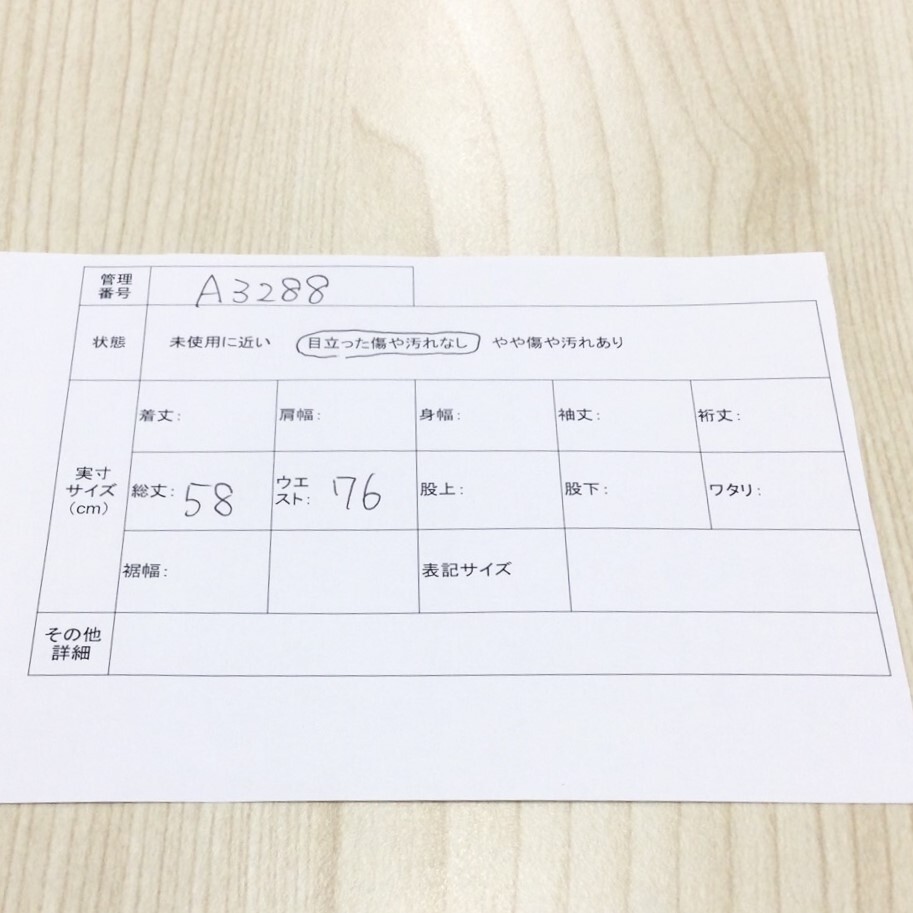 管理
番号
A3288
状態
未使用に近い 目立った傷や汚れなし やや傷や汚れあり
実寸
サイズ
(cm)
着丈: 肩幅: 身幅: 袖丈: 裄丈:
総丈: 58 ウエ
スト: 76 股上: 股下: ワタリ:
裾幅: 表記サイズ
その他
詳細